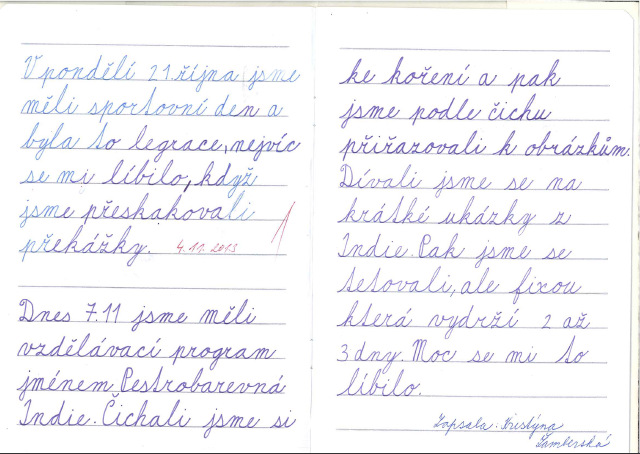 V pondělí 21.října jsme
měli sportovní den a
byla to legrace, nejvíc
se mi líbilo, když
jsme přeskakovali
překážky. 4.11.2013
1
Dnes 7.11 jsme měli
vzdělávací program
jménem Pestrobarevná
Indie. Čichali jsme si
ke koření a pak
jsme podle čichu
přiřazovali k obrázkům.
Dívali jsme se na
krátké ukázky z
Indie. Pak jsme se
tetovali, ale fixou
která vydrží 2 až
3 dny. Moc se mi to
líbilo.
Zapsala: Kristýna
Šamberská